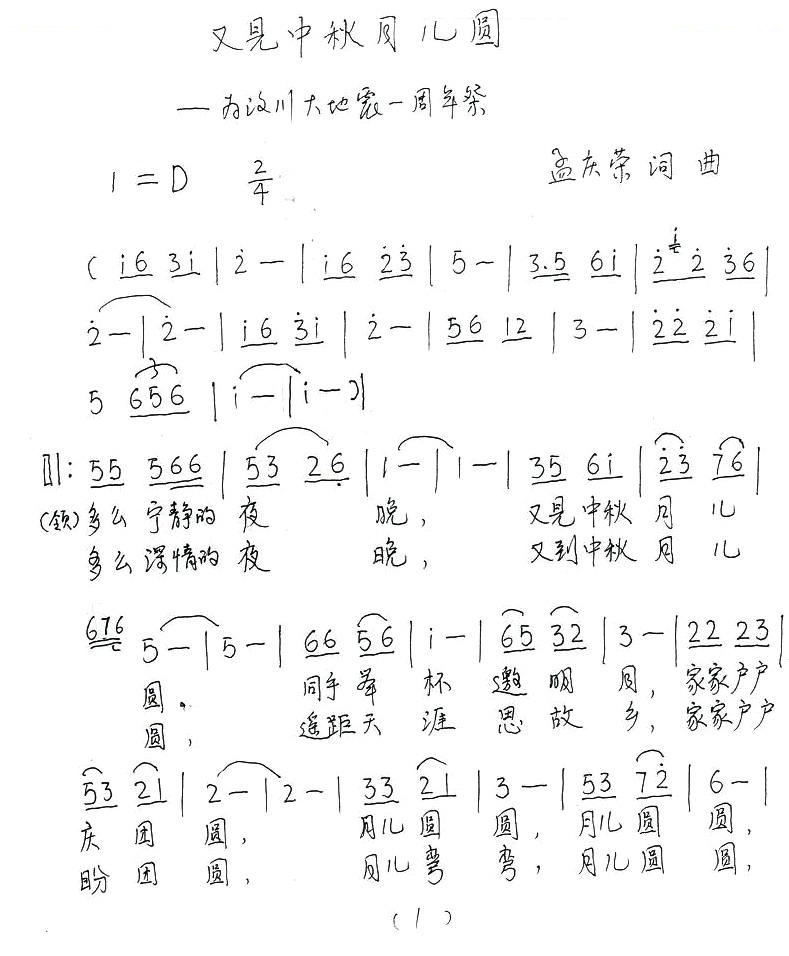 又见中秋月儿圆
——为汶川大地震一周年祭
1=D 2/4
孟庆荣 词 曲
( i6 3i | 2̇ — | i6 2̇3̇ | 5 — | 3.5 6i | i 2̇ 2̇ 3̇6 |
2̇ — | 2̇ — | i6 3̇i | 2̇ — | 56 12 | 3 — | 2̇2̇ 2̇i |
5 3 656 | i — | i — ) |
‖: 55 566 | 53 26̣ | 1 — | 1 — | 35 6i | 2̇3̇ 76 |
(领) 多么 宁静的 夜 晚, 又见中秋 月 儿
多么深情的 夜 晚, 又到中秋 月 儿
676 5 — | 5 — | 66 56 | i — | 65 32 | 3 — | 22 23 |
圆。 同手举 杯 邀 明 月, 家家户户
圆, 遥距天 涯 思 故 乡, 家家户户
53 21 | 2 — | 2 — | 33 21 | 3 — | 53 72̇ | 6 — |
庆 团 圆, 月儿 圆 圆, 月儿 圆 圆,
盼 团 圆, 月儿 弯 弯, 月儿 圆 圆,
(1)